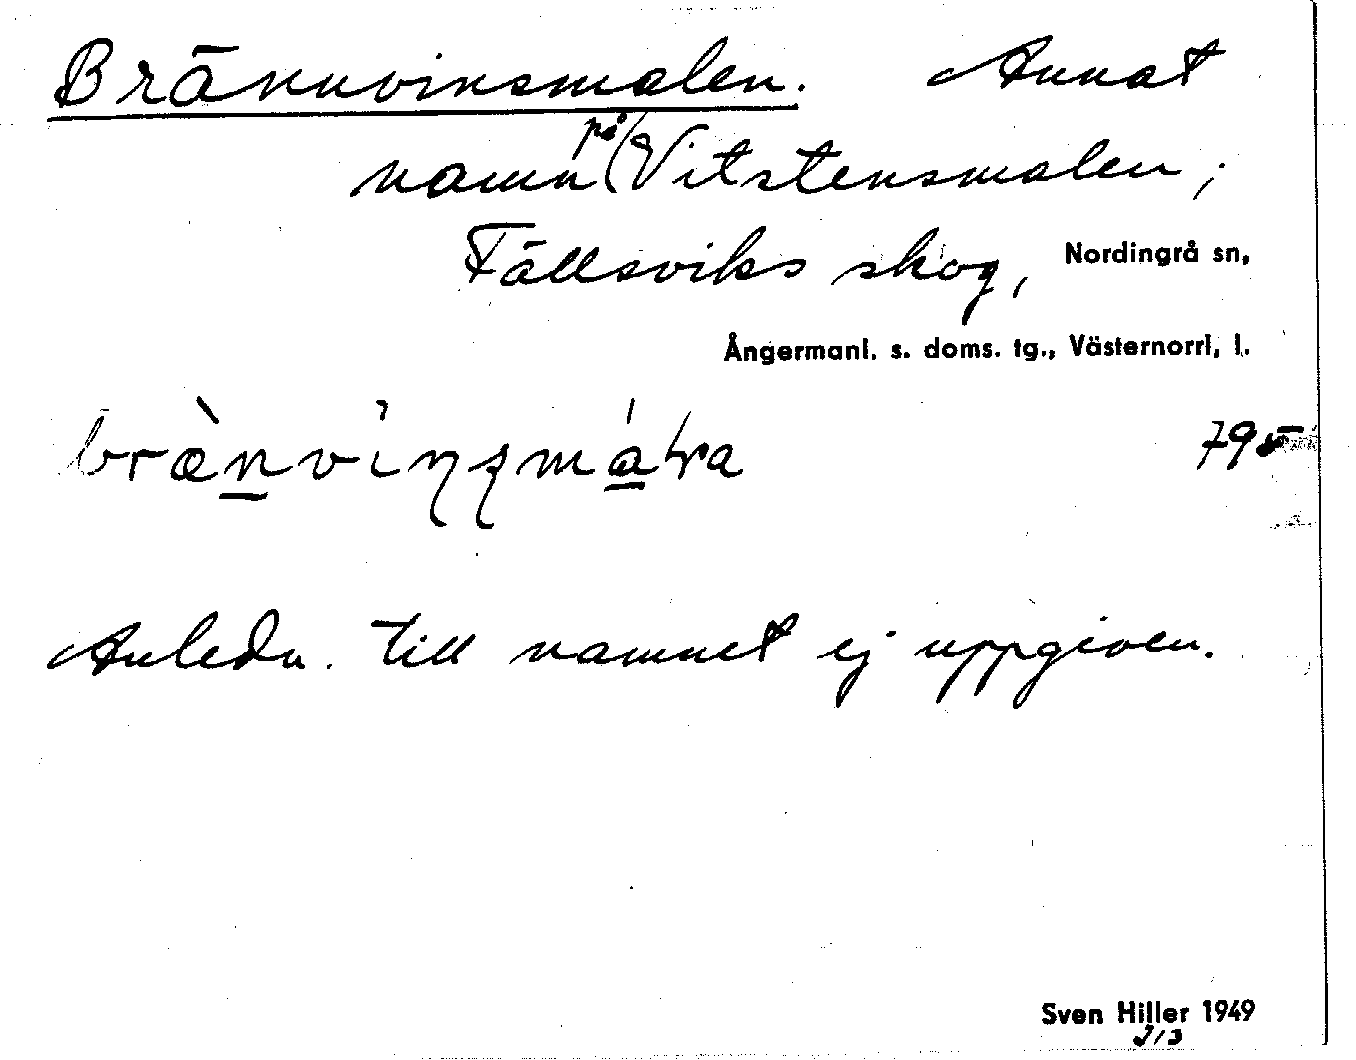 Brännvinsmalen. Annat
namn på Vitstensmalen,
Fällsviks skog, Nordingrå sn,
Ångermanl. s. doms. tg., Västernorrl. l.
795
Anledn. till namnet ej uppgiven.
Sven Hiller 1949